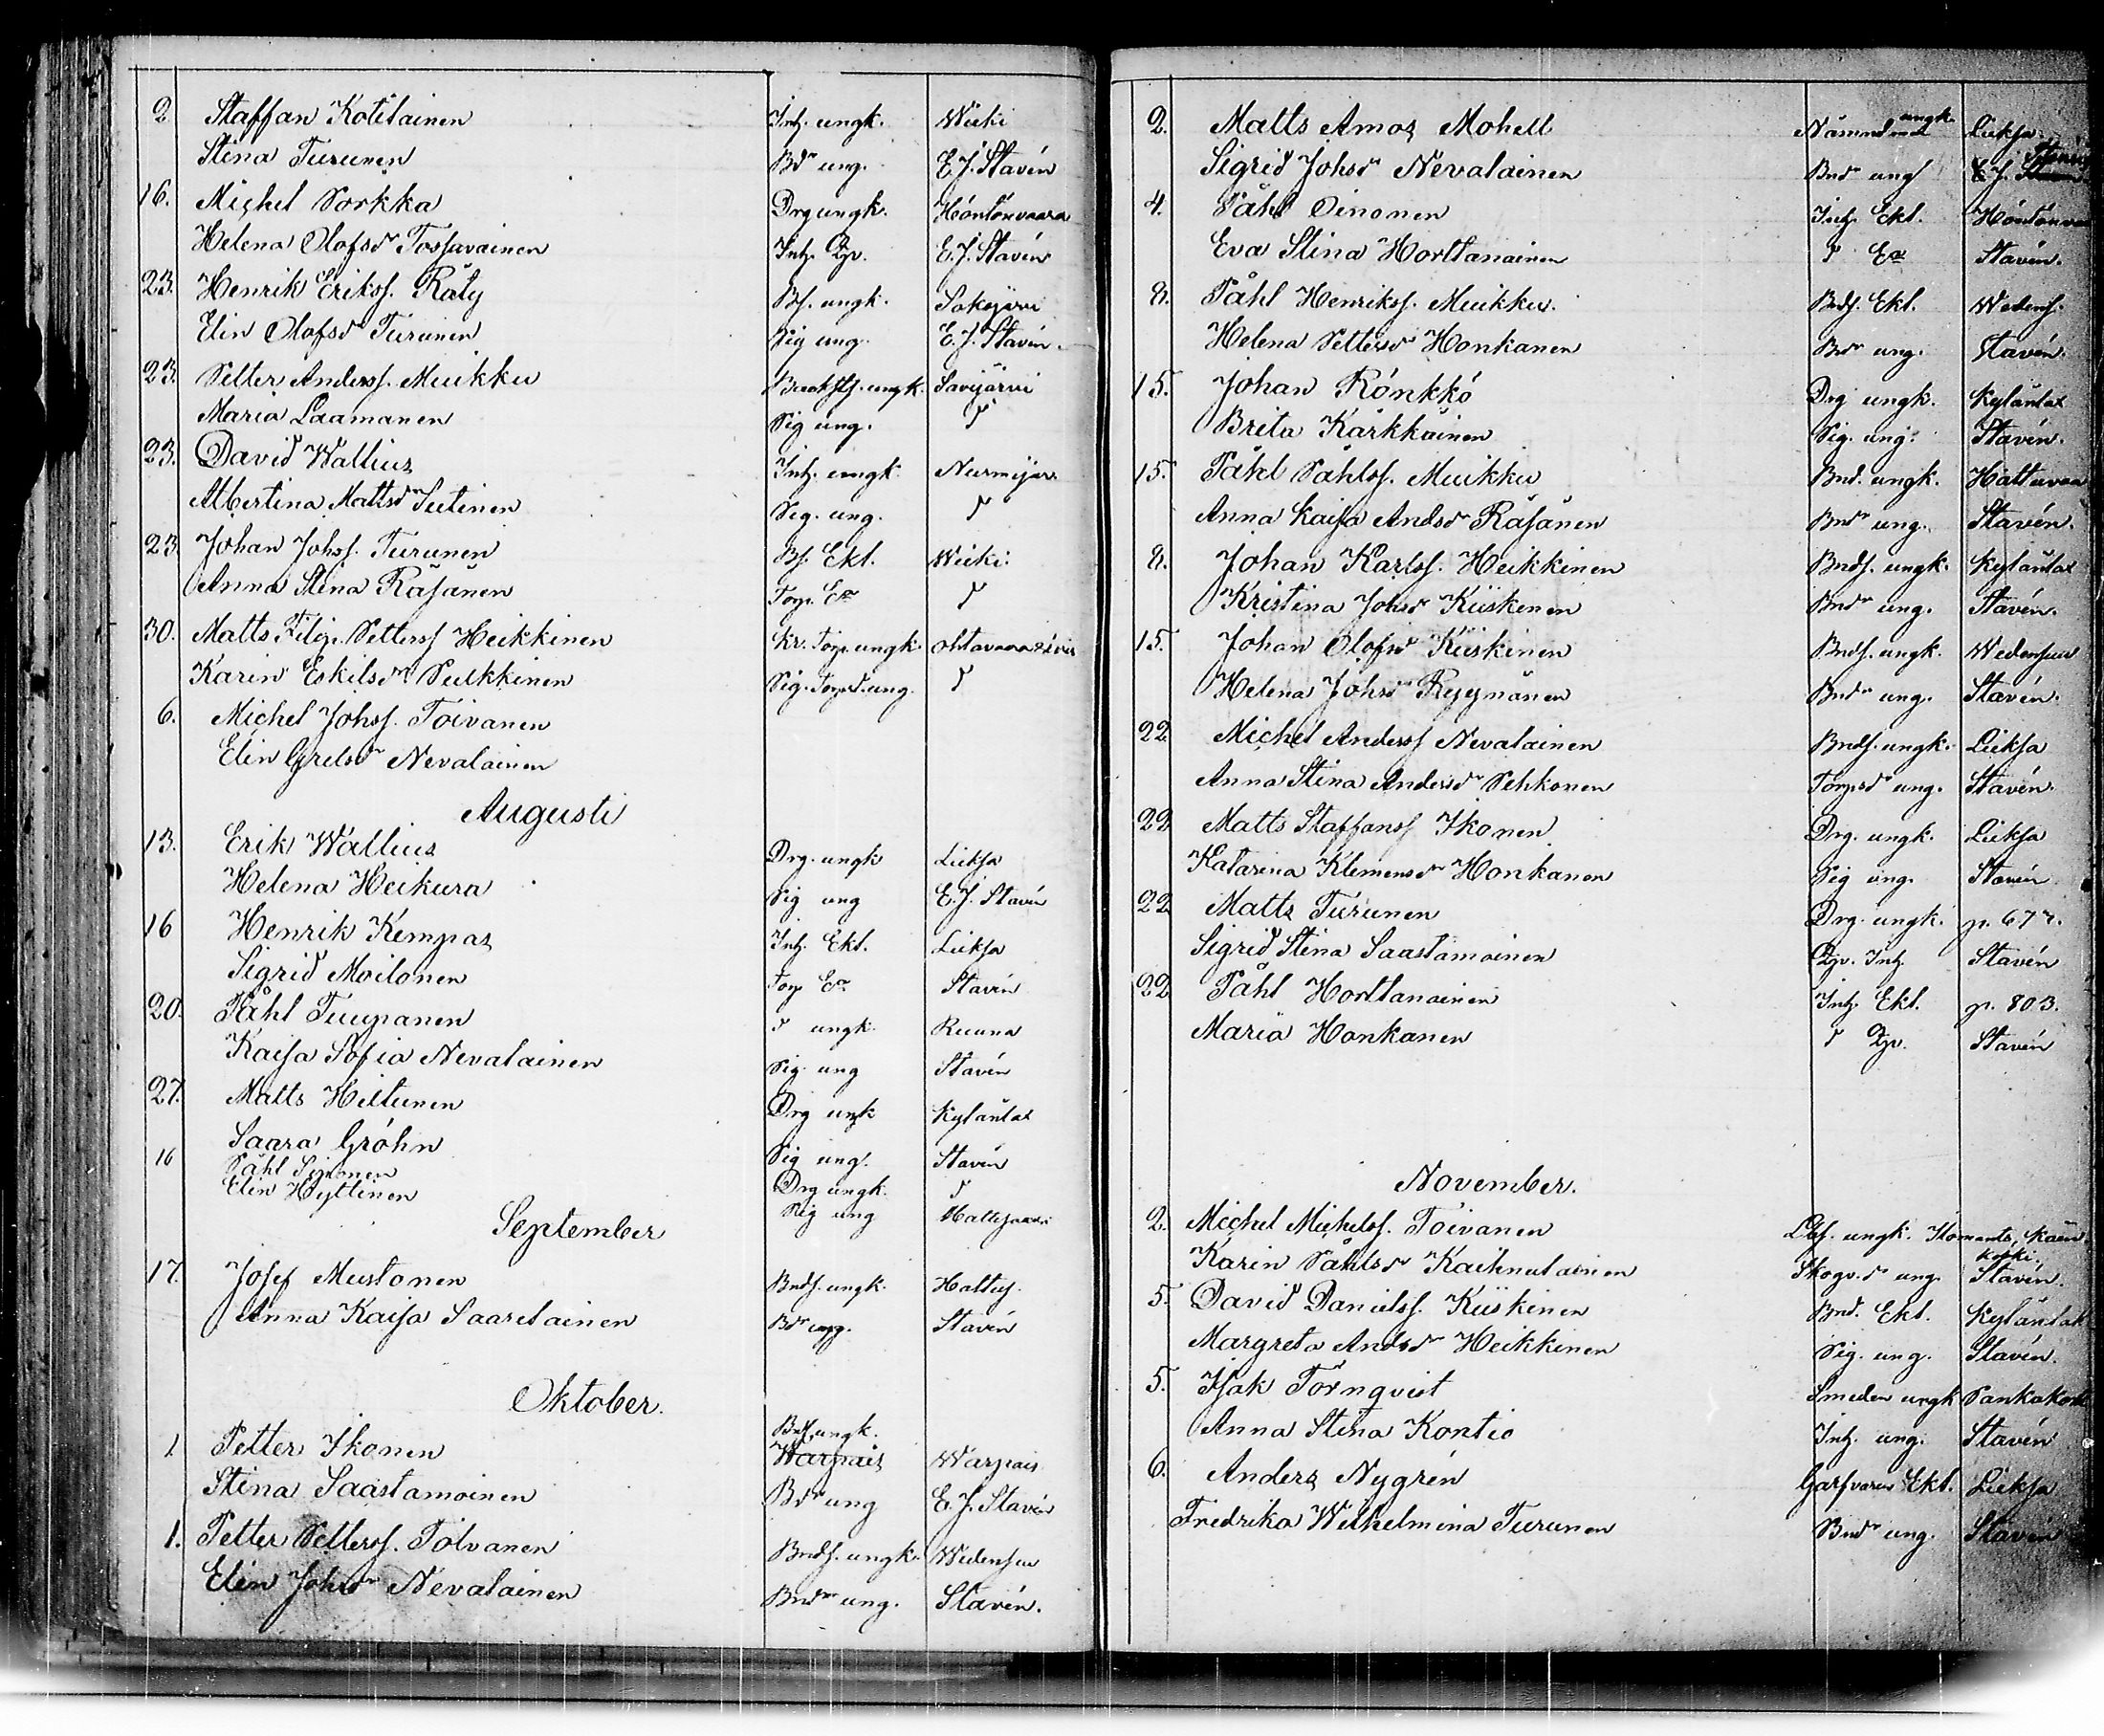 2 Staffan Kotilainen Inh. ungk. Wieki
Stina Turunen Bdr ung. E. J. Stavén
16. Michel Sorkka Drg ungk. Höntönvaara
Helena Olofsdr Tossavainen Inh. Pig. E. J. Stavén
23. Henrik Erikss. Räty Bs. ungk. Sokojärvi
Elin Olofsdr Turunen Pig ung. E. J. Stavén.
23. Petter Anderss. Muikku ungk. Savijärvi
Maria Laamanen Pig ung. d
23. David Wallius Inh. ungk. Nurmijär.
Albertina Mattsdr Sutinen Pig. ung. d
23. Johan Johss. Turunen Bs. Ekl. Wieki
Anna Stina Räsänen Torp. Ea d
30. Matts Filip. Petterss Heikkinen Kr. Torp. ungk.
Karin Eskilsdr Pulkkinen Pig. Torpd. ung. d
6. Michel Johss. Toivanen
Elin Grelsdr Nevalainen
Augusti
13. Erik Wallius Drg. ungk Lieksa
Helena Heikura Pig ung E. J. Stavén
16 Henrik Kempas Inh. Ekl. Lieksa
Sigrid Moilanen Torp Ea Stavén
20. Påhl Tuupanen d ungk. Ruuna
Kaisa Sofia Nevalainen Pig. ung Stavén
27. Matts Hiltunen Drg ungk Kylänlat
Saara Gröhn Pig ung. Stavén
16 Påhl Siponen Drg ungk. d
Elin Hyttinen Pig ung
September
17. Josef Mustonen Bnds. ungk. Hattuj.
Anna Kaisa Saarelainen Bdr ung. Stavén
Oktober.
Bs. ungk.
1 Petter Ikonen Warpais Warpais
Stina Saastamoinen Bdr ung E. J. Stavén
1. Petter Petterss. Tolvanen Bnds. ungk. Wiedensuu
Elin Johsdr Nevalainen Bndr ung. Stavén.
2. Matts Amos Mohell Nämndem ungk. Lieksa
Sigrid Johsdr Nevalainen Bndr ung E. J. Stavén
4. Påhl Oinonen Inh. Ekl. Höntönvaa
Eva Stina Horttanainen d Ea Stavén.
8. Påhl Henrikss. Muikku. Bnds. Ekl. Wiedens.
Helena Pettersdr Honkanen Bndr ung. Stavén.
15. Johan Rönkkö Drg ungk. Kylänlat
Brita Kärkkäinen Pig. ung. Stavén.
15. Påhl Påhlss. Muikku Bnd. ungk. Hattuvaa
Anna Kaisa Andsdr Räsänen Bndr ung. Stavén.
8. Johan Karlss. Heikkinen Bnds. ungk. Kylänlat
Kristina Johsdr Kiiskinen Bndr ung. Stavén.
15. Johan Olofsd Kiiskinen Bnds. ungk. Wiedensuu
Helena Johsdr Ryynänen Bndr ung. Stavén.
22 Michel Anderss Nevalainen Bnds. ungk. Lieksa
Anna Stina Andersdr Pehkonen Torpsdr ung. Stavén.
22 Matts Staffanss Ikonen Drg. ungk. Lieksa
Katarina Klemensdr Honkanen Pig ung. Stavén
22 Matts Turunen Drg. ungk. p. 677.
Sigrid Stina Saastamoinen Pig. Inh. Stavén
22 Påhl Horttanainen Inh. Ekl. p. 803.
Maria Honkanen d Pig. Stavén
November.
2. Michel Michelss. Toivanen ungk. Ilomants,
Karin Påhlsdr Kaihnulainen Skogv.dr ung. Stavén.
5. David Danielss. Kiiskinen Bnd. Ekl. Kylänlat
Margreta Andsdr Heikkinen Pig. ung. Stavén.
5. Isak Törnqvist Smeden ungk Pankakosk
Anna Stina Kontio Inh. ung. Stavén
6. Anders Nygrén Garfvaren Ekl. Lieksa
Fredrika Wilhelmina Turunen Bndr ung. Stavén